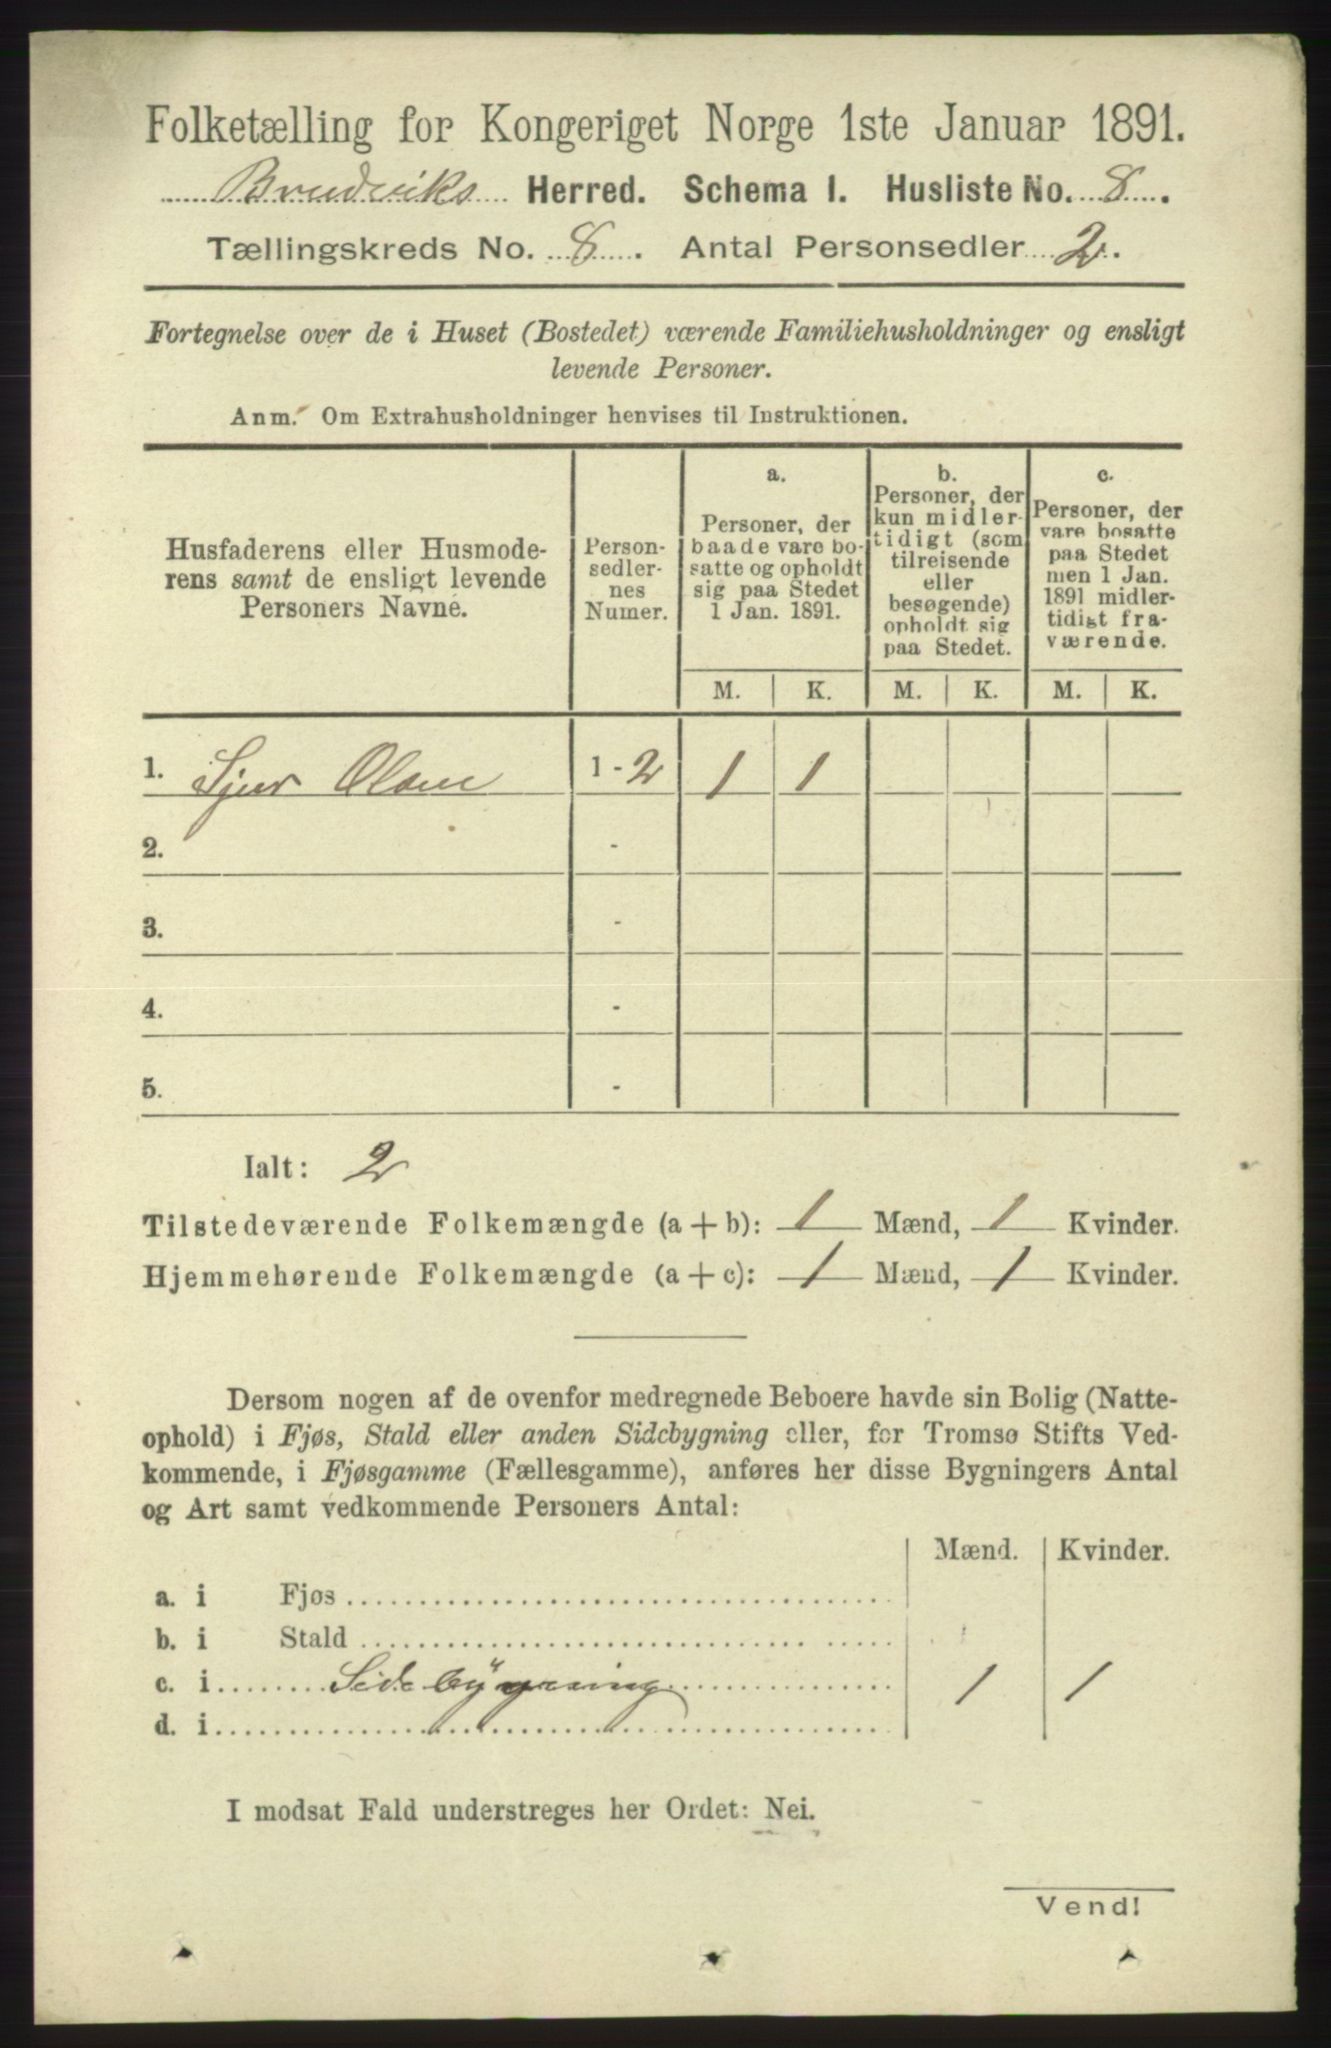 Folketælling for Kongeriget Norge 1ste Januar 1891.
Bruviks Herred. Schema I. Husliste No. 8.
Tællingskreds No. 8. Antal Personsedler 2.
Fortegnelse over de i Huset (Bostedet) værende Familiehusholdninger og ensligt
levende Personer.
Anm. Om Extrahusholdninger henvises til Instruktionen.
Husfaderens eller Husmode-
rens samt de ensligt levende
Personers Navne.
Person-
sedler-
nes
Numer.
a.
Personer, der
baade vare bo-
satte og opholdt
sig paa Stedet
1 Jan. 1891.
b.
Personer, der
kun midler-
tidigt (som
tilreisende
eller
besøgende)
opholdt sig
paa Stedet.
c.
Personer, der
vare bosatte
paa Stedet
men 1 Jan.
1891 midler-
tidigt fra-
værende.
M. K. M. K. M. K.
1. Sjur Olsen 1 - 2 1 1
2. -
3. -
4. -
5. -
Ialt: 2
Tilstedeværende Folkemængde (a + b): 1 Mænd, 1 Kvinder.
Hjemmehørende Folkemængde (a + c): 1 Mænd, 1 Kvinder.
Dersom nogen af de ovenfor medregnede Beboere havde sin Bolig (Natte-
ophold) i Fjøs, Stald eller anden Sidebygning eller, for Tromsø Stifts Ved-
kommende, i Fjøsgamme (Fællesgamme), anføres her disse Bygningers Antal
og Art samt vedkommende Personers Antal:
Mænd. Kvinder.
a. i Fjøs
b. i Stald
c. i Sidebygning 1 1
d. i
I modsat Fald understreges her Ordet: Nei.
Vend!